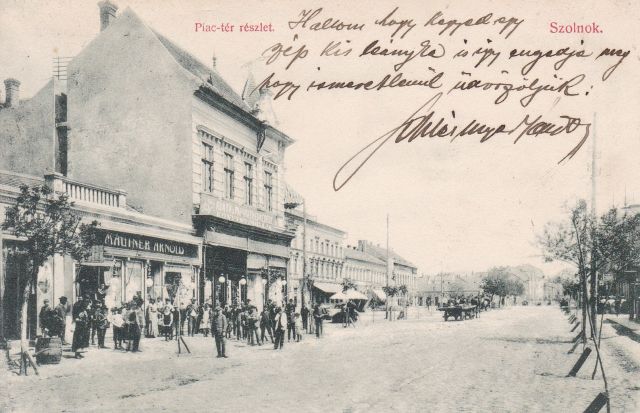 Piac-tér részlet.
Szolnok.
Hallom hogy kegyed egy
szép kis leányka is így engedje meg
hogy ismeretlenül üdvözöljük:
MAUTNER ARNOLD